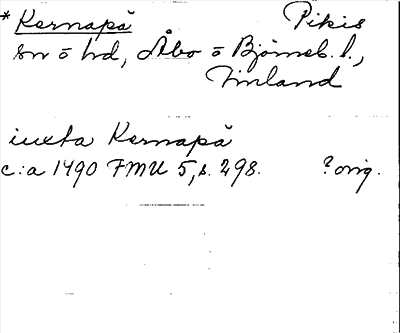 * Kernapä Pikis
sn ō hd, Åbo ō Björneb. l.,
Finland
iuxta Kernapä
c:a 1490 FMU 5, s. 298. ? orig.